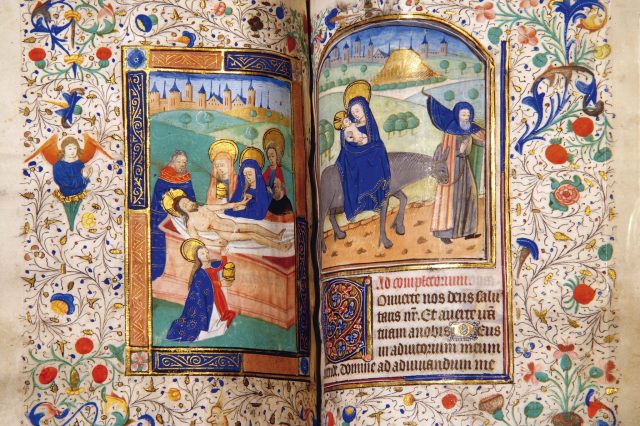 Ad completorium.
Conuerte nos deus salu
taris nr̄. Et auerte irā
tuam anobis. Deus
in adiutorium meum
domine ad adiuuandum me